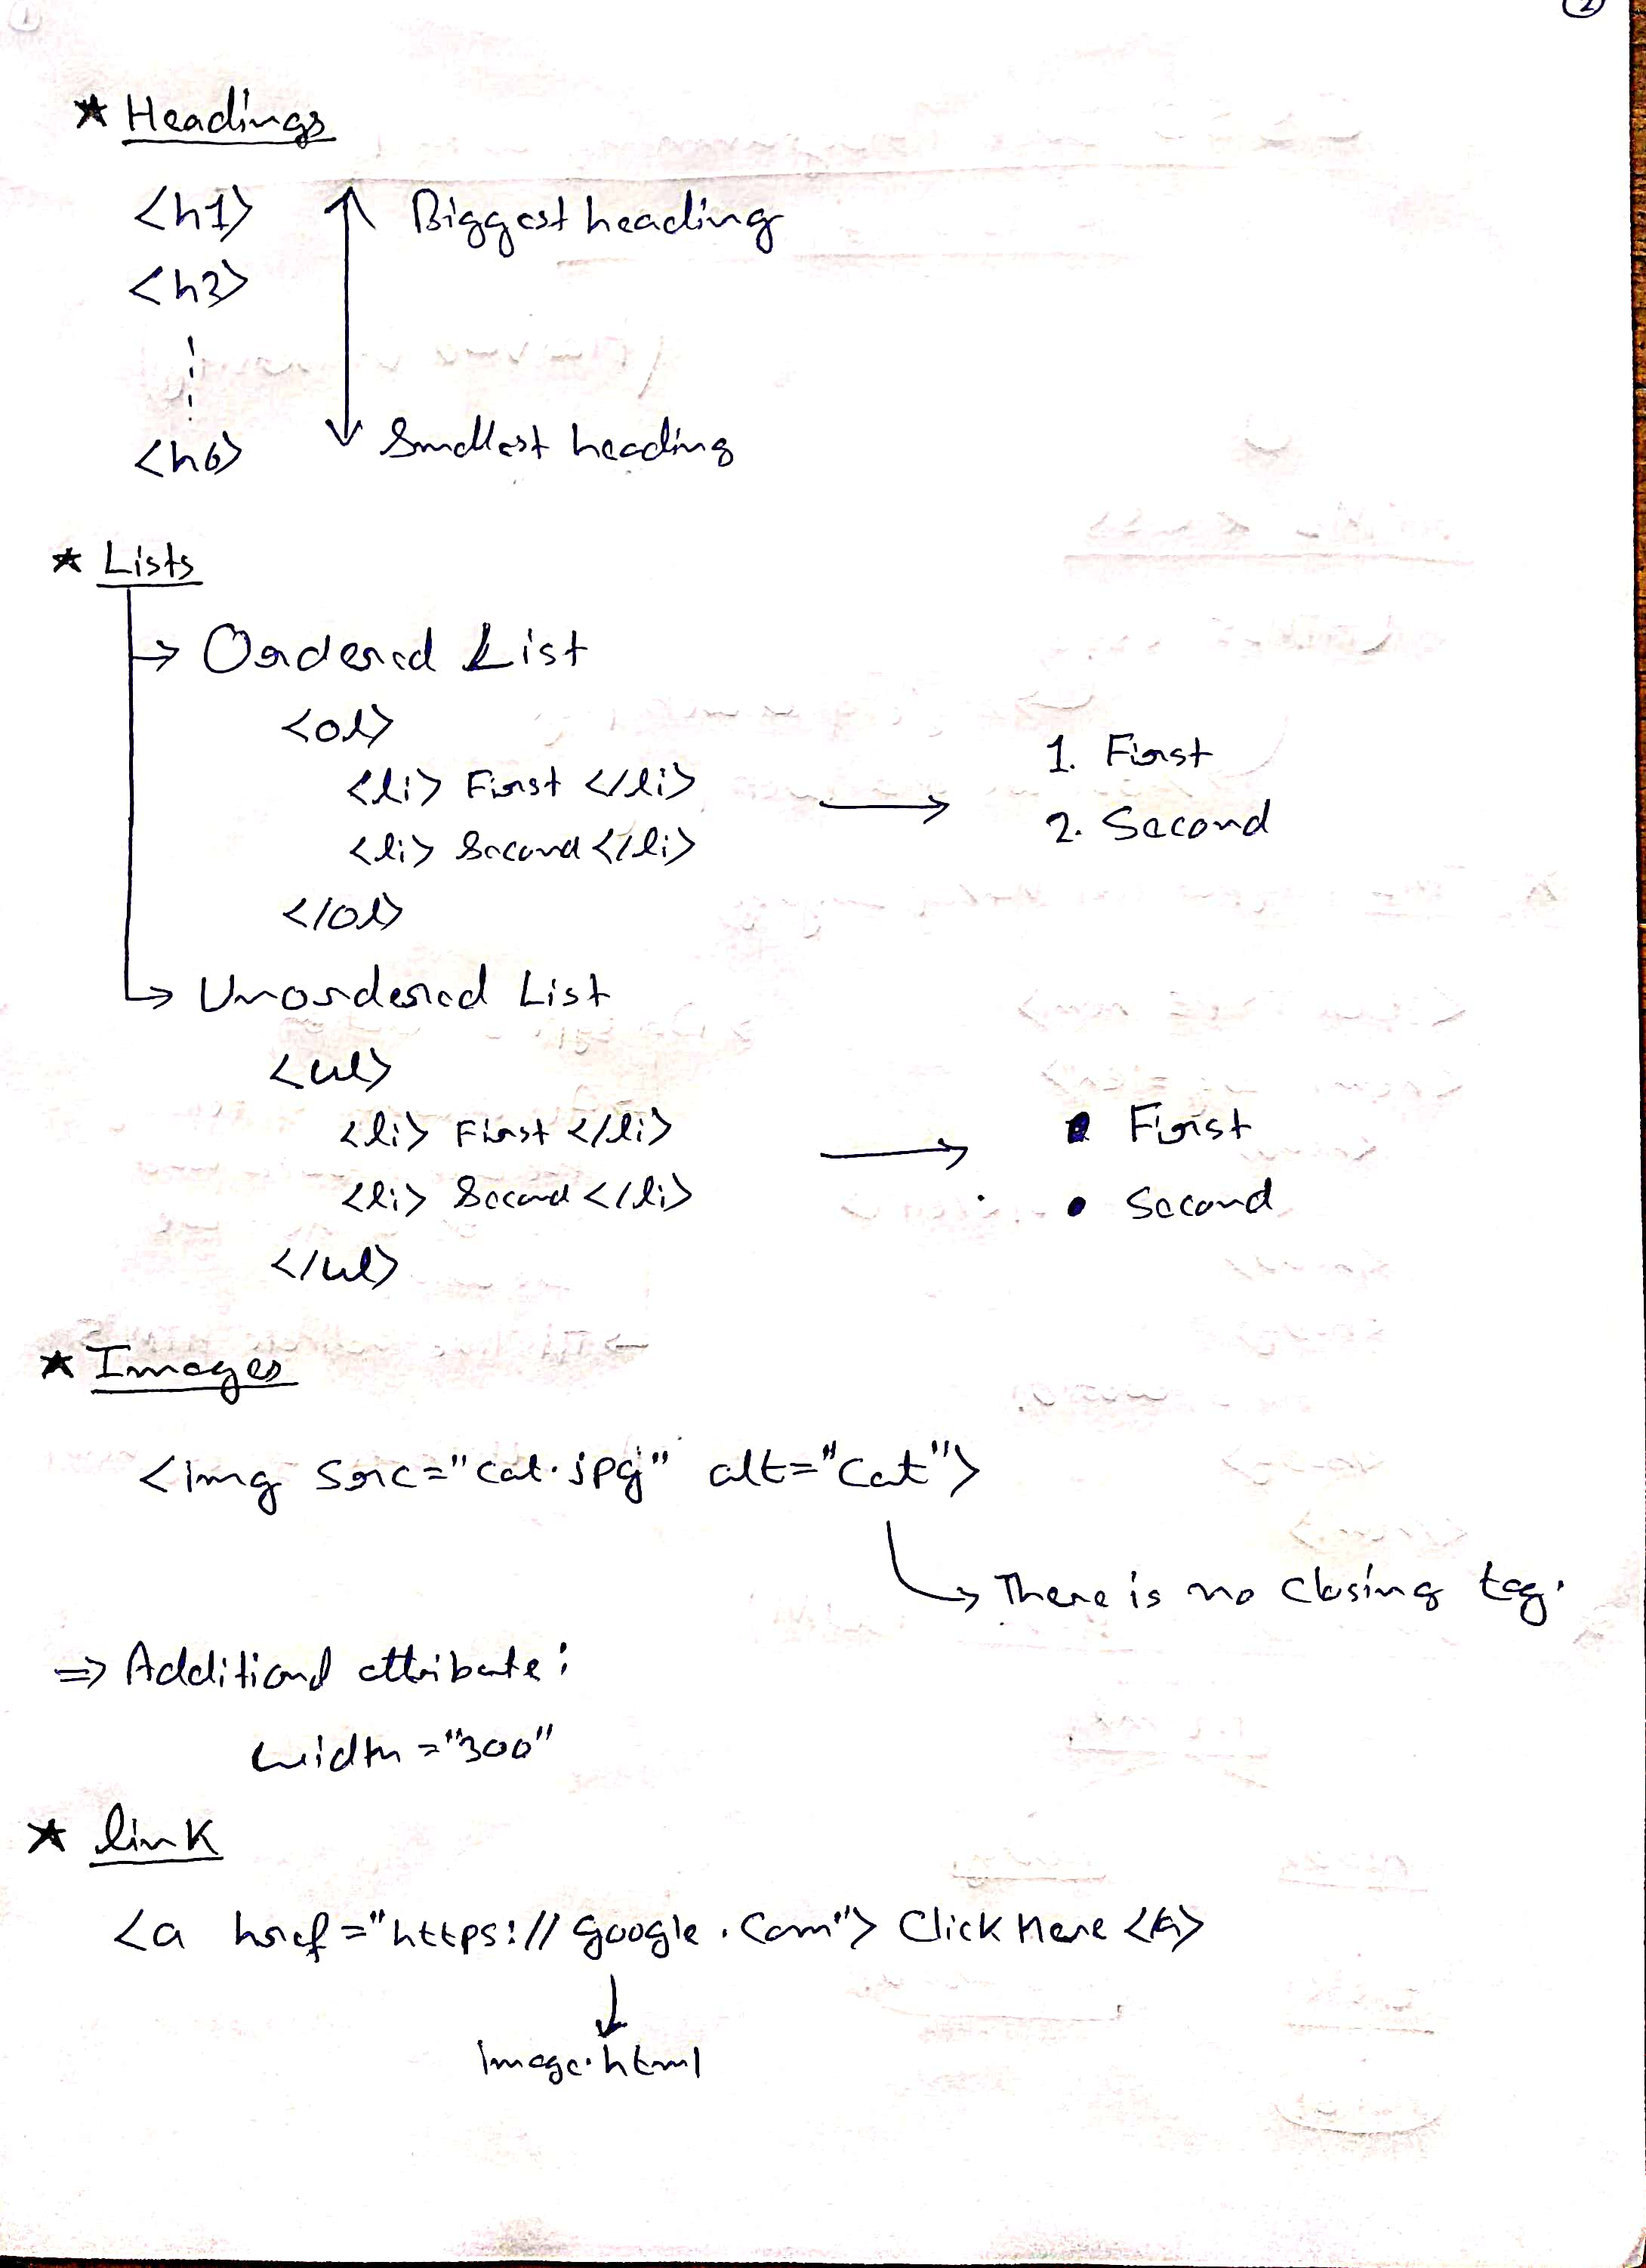 2
★ Headings
<h1> Biggest heading
<h2>
<h6> Smallest heading
★ Lists
→ Ordered List
<ol>
<li> First </li> → 1. First
<li> Second </li> 2. Second
</ol>
→ Unordered List
<ul>
<li> First </li> → • First
<li> Second </li> • Second
</ul>
★ Images
<img src="cat.jpg" alt="cat">
→ There is no closing tag.
⇒ Additional attribute:
width="300"
★ link
<a href="https://google.com"> Click Here </a>
↓
Image.html